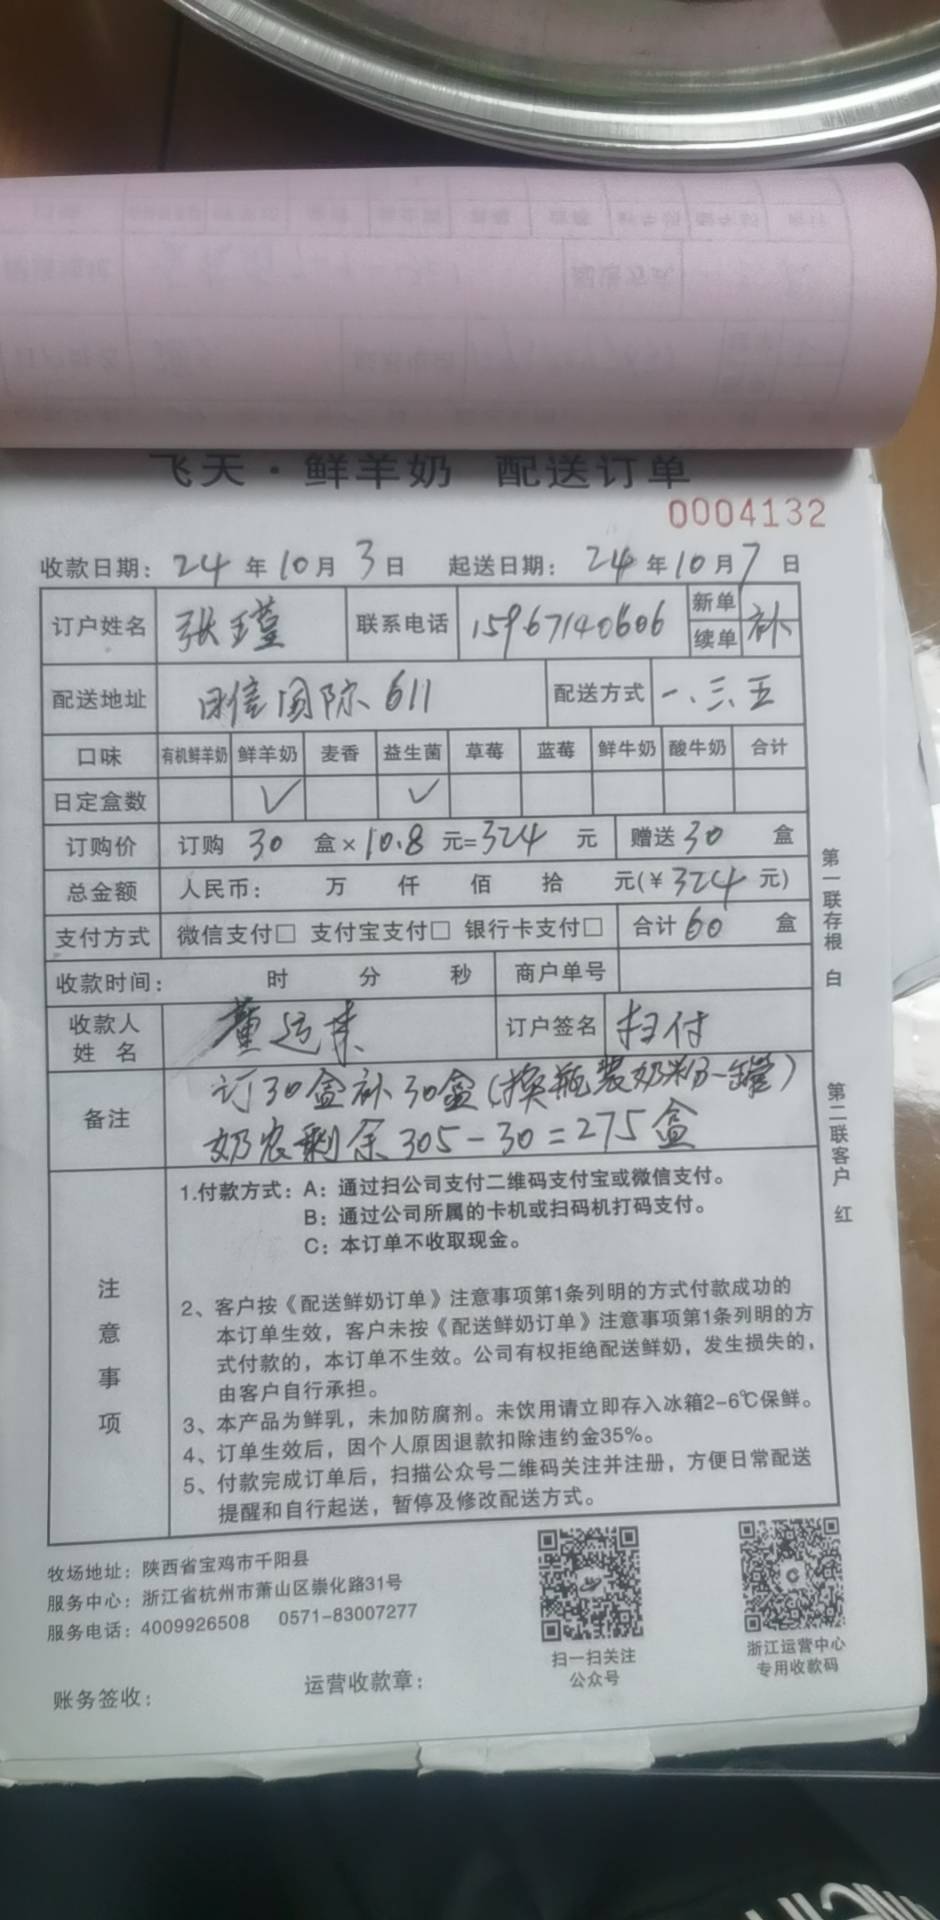 飞天·鲜羊奶 配送订单
0004132
收款日期: 24年10月3日 起送日期: 24年10月7日
订户姓名 张瑾 联系电话 15967140606 新单 续单 补
配送地址 国际611 配送方式 一、三、五
口味 有机鲜羊奶 鲜羊奶 麦香 益生菌 草莓 蓝莓 鲜牛奶 酸牛奶 合计
日定盒数 ✓ ✓
订购价 订购 30 盒×10.8元=324 元 赠送30 盒
总金额 人民币: 万 仟 佰 拾 元(¥324元)
支付方式 微信支付□ 支付宝支付□ 银行卡支付□ 合计60 盒
收款时间: 时 分 秒 商户单号
收款人姓名 董运来 订户签名 扫付
备注 订30盒补30盒(换瓶装奶粉一罐)
奶农剩余305-30=275盒
第一联存根 白
第二联客户 红
注意事项
1.付款方式: A: 通过扫公司支付二维码支付宝或微信支付。
B: 通过公司所属的卡机或扫码机打码支付。
C: 本订单不收取现金。
2、客户按《配送鲜奶订单》注意事项第1条列明的方式付款成功的
本订单生效，客户未按《配送鲜奶订单》注意事项第1条列明的方
式付款的，本订单不生效。公司有权拒绝配送鲜奶，发生损失的，
由客户自行承担。
3、本产品为鲜乳，未加防腐剂。未饮用请立即存入冰箱2-6℃保鲜。
4、订单生效后，因个人原因退款扣除违约金35%。
5、付款完成订单后，扫描公众号二维码关注并注册，方便日常配送
提醒和自行起送，暂停及修改配送方式。
牧场地址: 陕西省宝鸡市千阳县
服务中心: 浙江省杭州市萧山区崇化路31号
服务电话: 4009926508 0571-83007277
扫一扫关注
公众号
浙江运营中心
专用收款码
账务签收: 运营收款章: